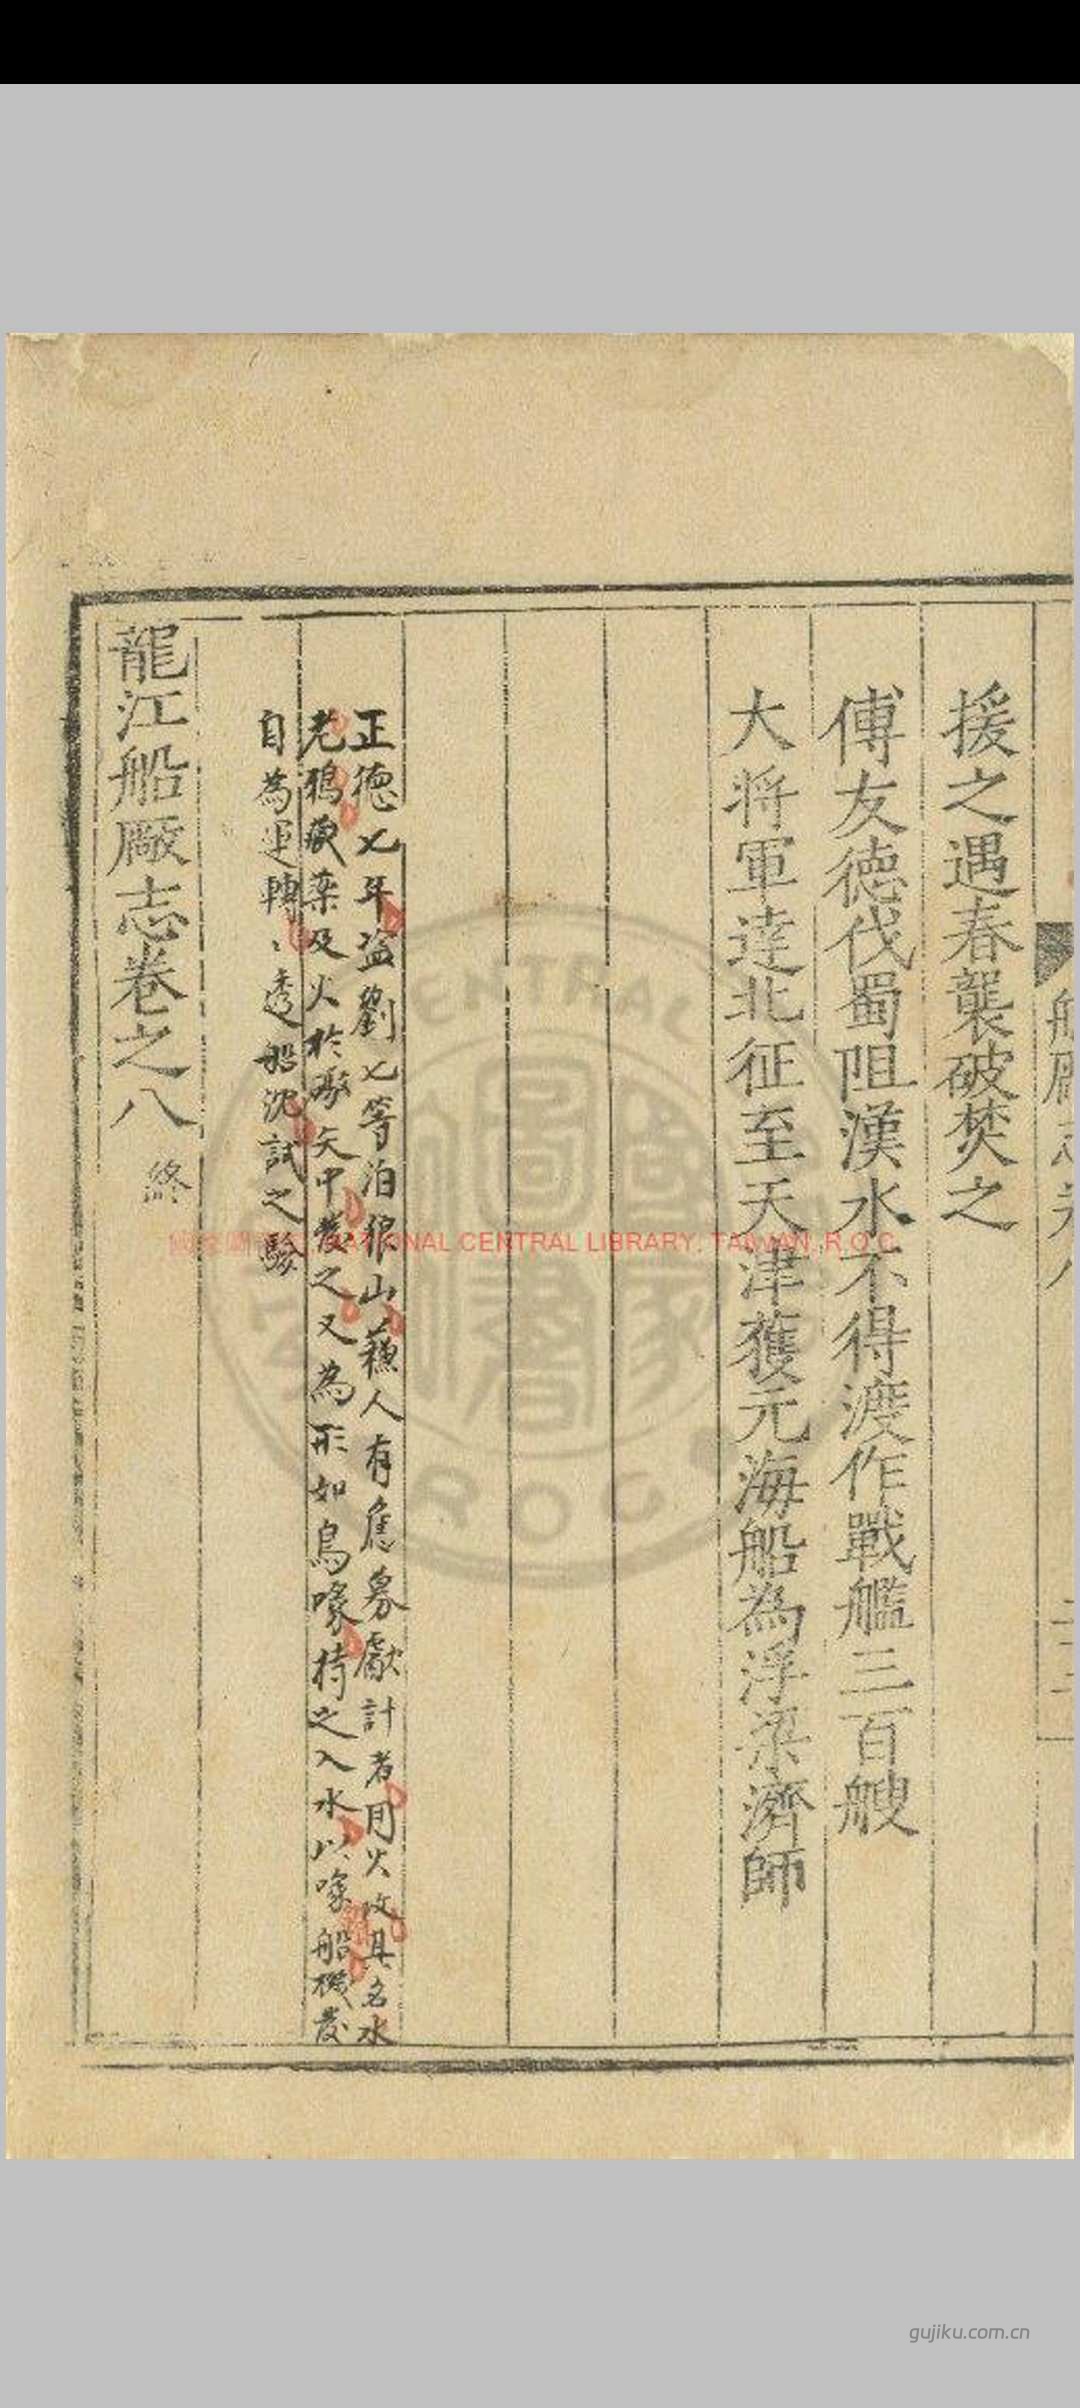 援之遇春襲破焚之
傅友德伐蜀阻漢水不得渡作戰艦三百艘
大将軍達北征至天津獲元海船為浮梁濟師
正德七年盗劉七等泊狼山蘓人有應募獻計者用火攻具名水
老鴉藏藥及火於砲矢中發之又為形如鳥喙持之入水以喙船機發
自為運轉〻透船沈試之驗
龍江船廠志卷之八 終
NATIONAL CENTRAL LIBRARY. TAIWAN .R.O.C
gujiku.com.cn